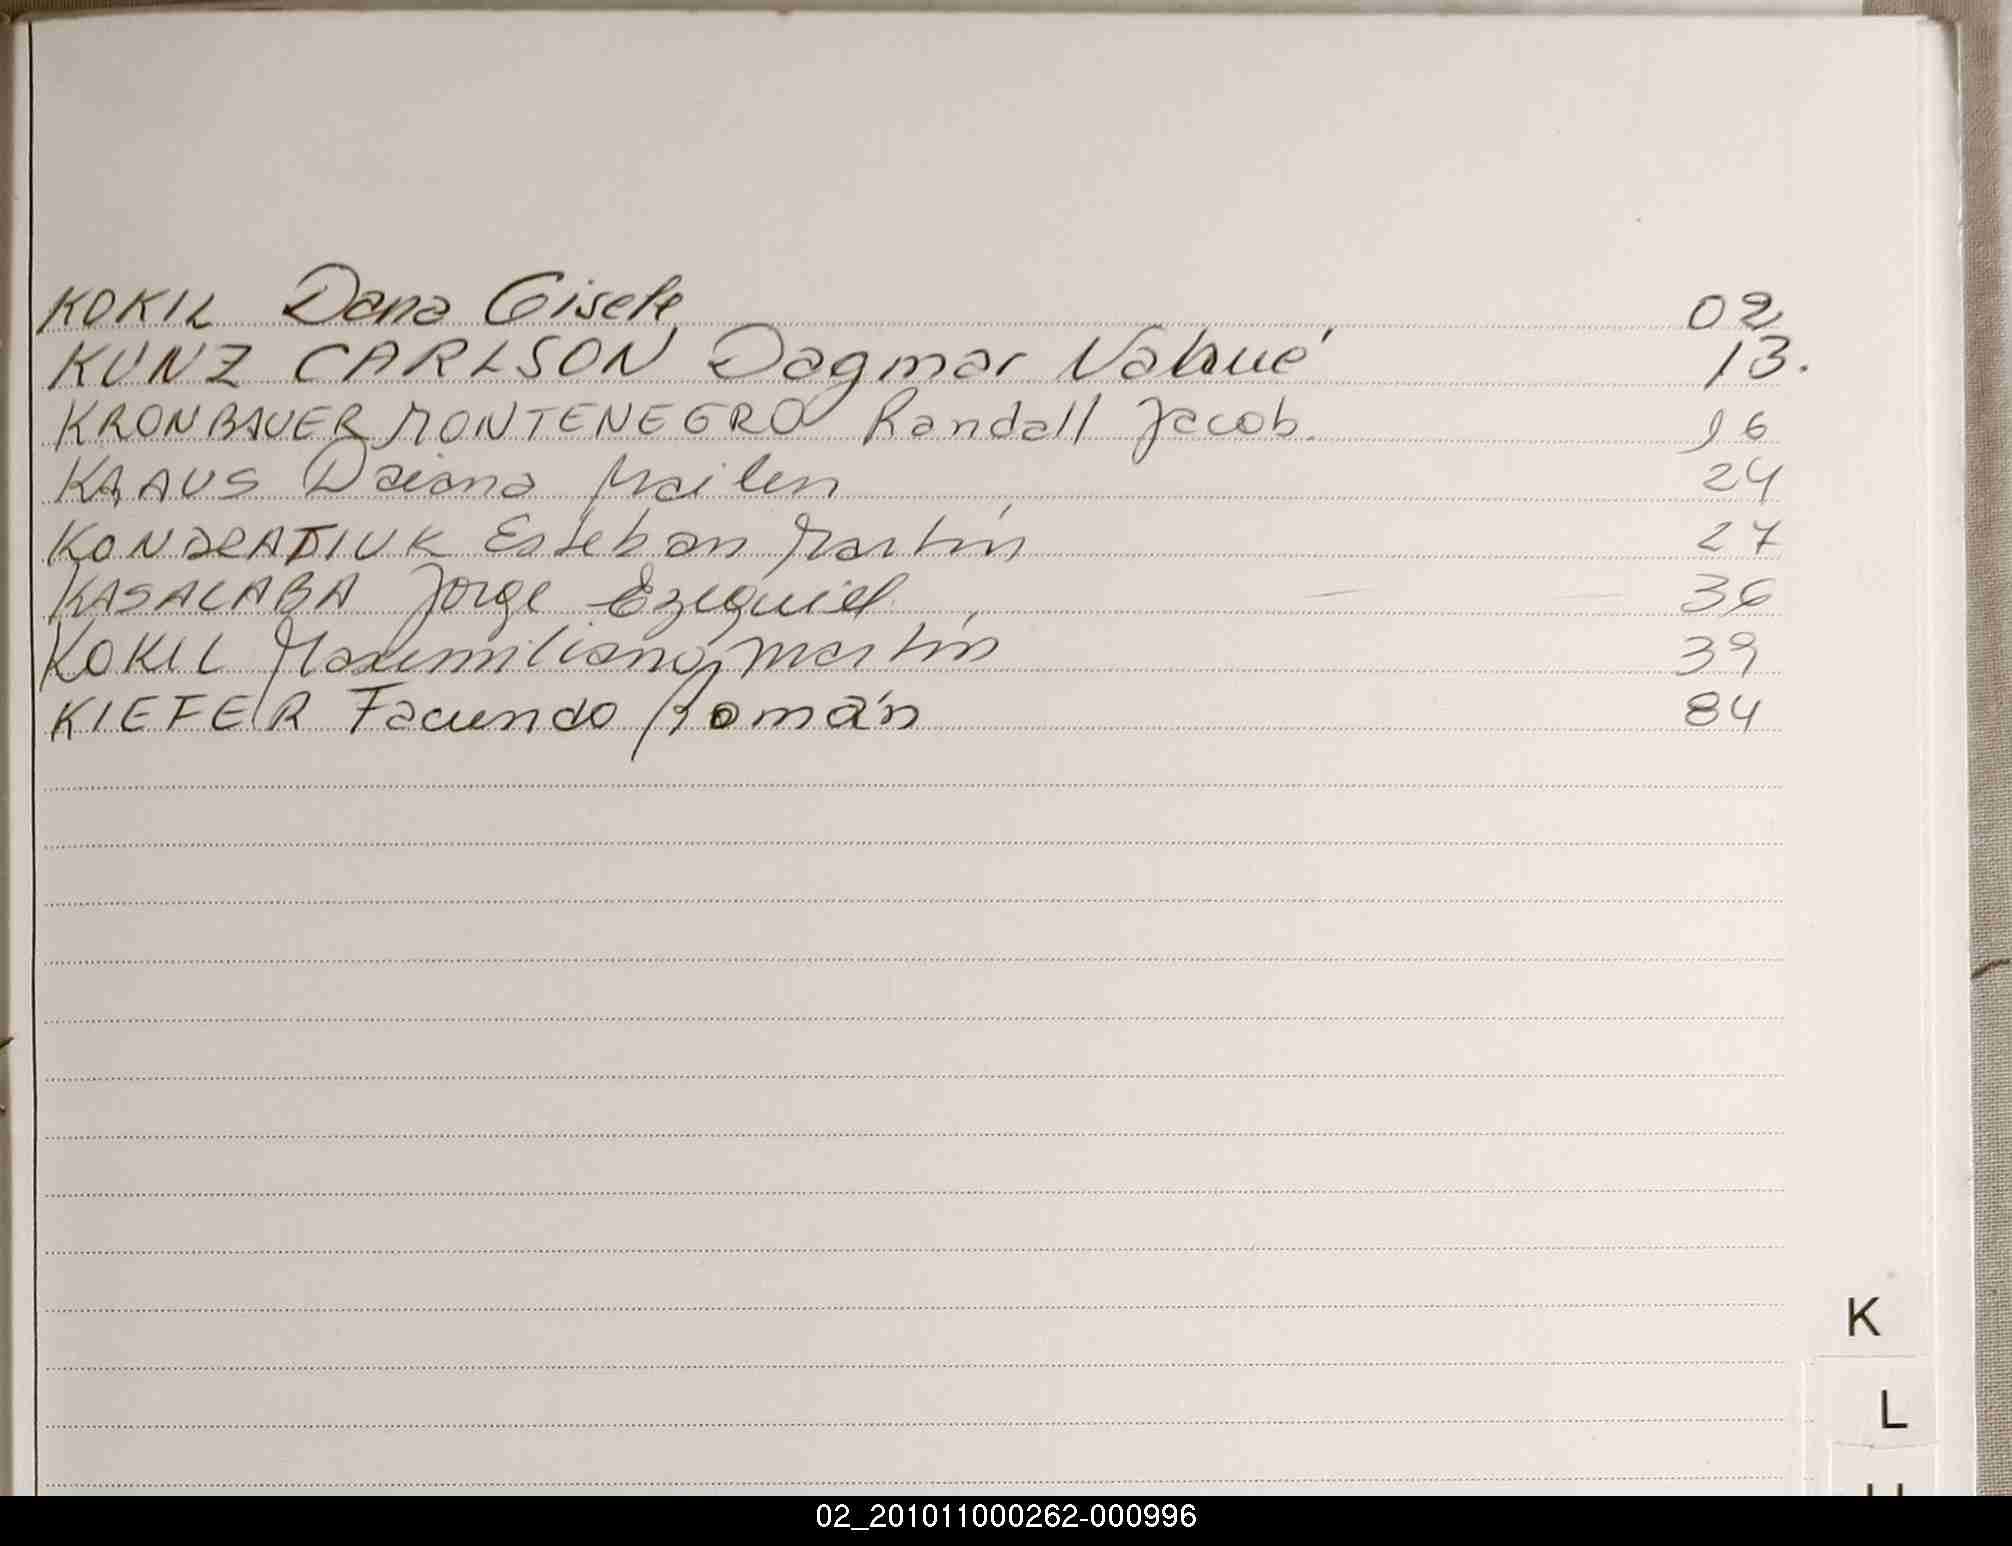 KOKIL Dana Gisele 02
KUNZ CARLSON Dagmar Nahué 13.
KRONBAUER MONTENEGRO Randall Jacob. 16
KRAUS Daiana Mailen 24
KONDRATIUK Esteban Martín 27
KASALABA Jorge Ezequiel 36
KOKIL Maximiliano Martín 39
KIEFER Facundo Román 84
K
L
02_201011000262-000996